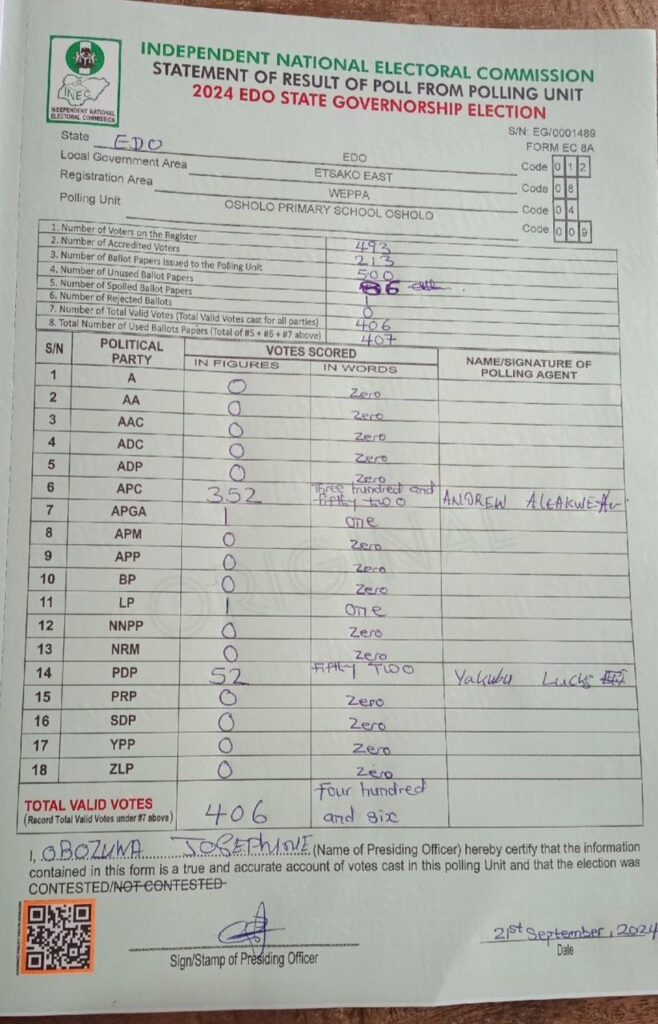 INDEPENDENT NATIONAL ELECTORAL COMMISSION
STATEMENT OF RESULT OF POLL FROM POLLING UNIT
2024 EDO STATE GOVERNORSHIP ELECTION
INEC
INDEPENDENT NATIONAL
ELECTORAL COMMISSION
S/N: EG/0001489
FORM EC 8A
State EDO EDO Code 0 1 2
Local Government Area ETSAKO EAST Code 0 8
Registration Area WEPPA Code 0 4
Polling Unit OSHOLO PRIMARY SCHOOL OSHOLO Code 0 0 9
1. Number of Voters on the Register 493
2. Number of Accredited Voters 213
3. Number of Ballot Papers Issued to the Polling Unit 500
4. Number of Unused Ballot Papers
5. Number of Spoiled Ballot Papers 1
6. Number of Rejected Ballots 0
7. Number of Total Valid Votes (Total Valid Votes cast for all parties) 406
8. Total Number of Used Ballots Papers (Total of #5 + #6 + #7 above) 407
S/N POLITICAL PARTY VOTES SCORED NAME/SIGNATURE OF POLLING AGENT
IN FIGURES IN WORDS
1 A 0 Zero
2 AA 0 Zero
3 AAC 0 Zero
4 ADC 0 Zero
5 ADP 0 Zero
6 APC 352 Three hundred and fifty two ANDREW
7 APGA 1 one
8 APM 0 Zero
9 APP 0 Zero
10 BP 0 Zero
11 LP 1 one
12 NNPP 0 Zero
13 NRM 0 Zero
14 PDP 52 Fifty Two Yakubu
15 PRP 0 Zero
16 SDP 0 Zero
17 YPP 0 Zero
18 ZLP 0 Zero
TOTAL VALID VOTES 406 Four hundred and six
(Record Total Valid Votes under #7 above)
ORIGINAL
I, OBOZUWA JOSEPHINE (Name of Presiding Officer) hereby certify that the information
contained in this form is a true and accurate account of votes cast in this polling Unit and that the election was
CONTESTED/NOT CONTESTED
21st September, 2024
Sign/Stamp of Presiding Officer Date